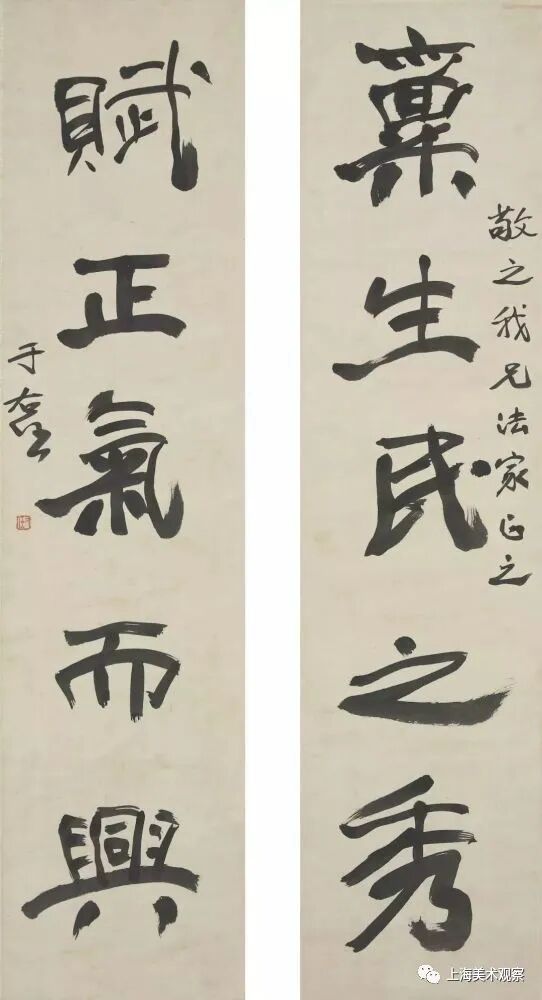 稟生民之秀
敬之我兄法家正之
賦正氣而興
于右任
上海美术观察